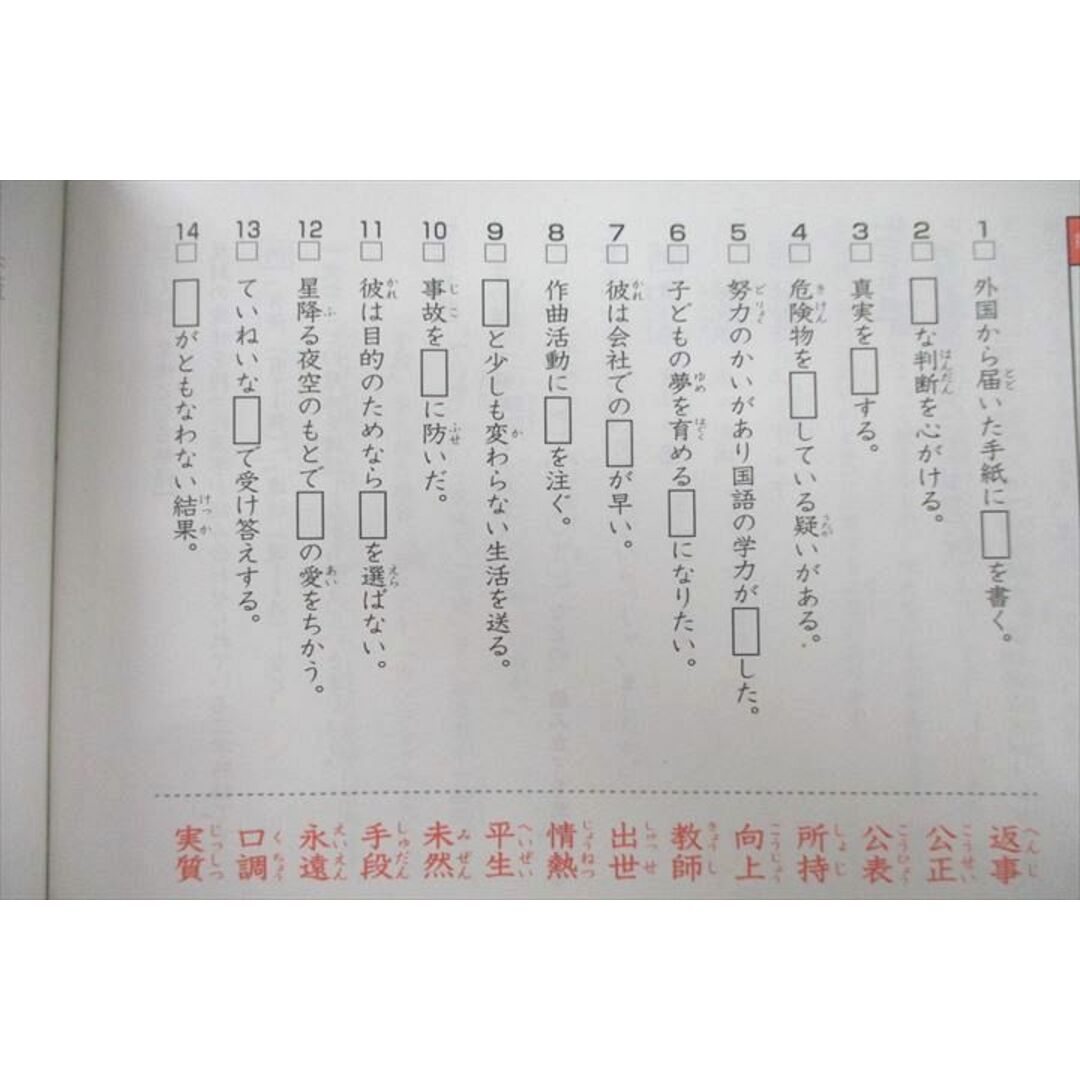 1 □ 外国から届いた手紙に□を書く。
2 □ □な判断を心がける。
3 □ 真実を□する。
4 □ 危険物を□している疑いがある。
5 □ 努力のかいがあり国語の学力が□した。
6 □ 子どもの夢を育める□になりたい。
7 □ 彼は会社での□が早い。
8 □ 作曲活動に□を注ぐ。
9 □ □と少しも変わらない生活を送る。
10 □ 事故を□に防いだ。
11 □ 彼は目的のためなら□を選ばない。
12 □ 星降る夜空のもとで□の愛をちかう。
13 □ ていねいな□で受け答えする。
14 □ □がともなわない結果。
返事
公正
公表
所持
向上
教師
出世
情熱
平生
未然
手段
永遠
口調
実質